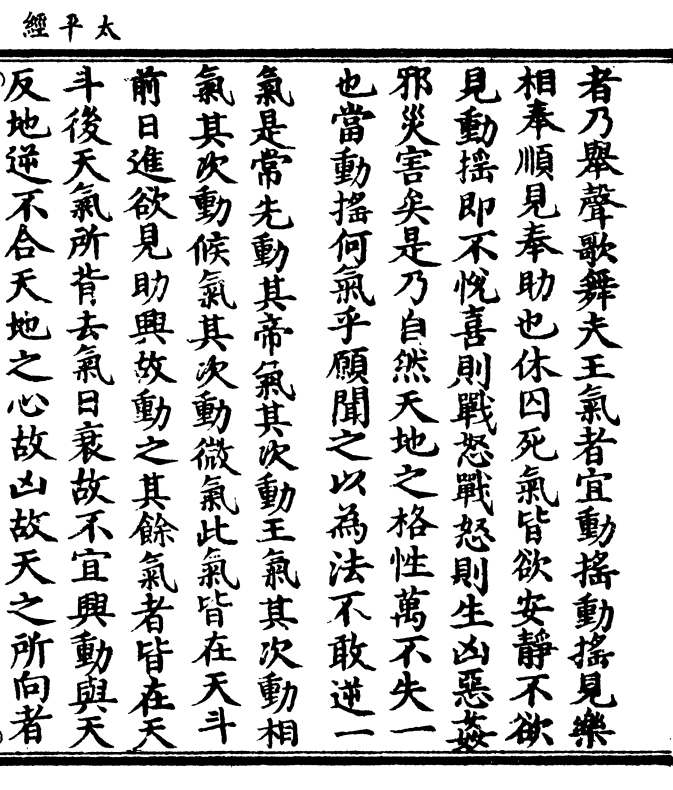 太平經
者乃舉聲歌舞夫王氣者宜動搖動搖見樂
相奉順見奉助也休囚死氣皆欲安靜不欲
見動揺即不悅喜則戰怒戰怒則生凶惡姦
邪災害矣是乃自然天地之格性萬不失一
也當動搖何氣乎願聞之以為法不敢逆一
氣是常先動其帝氣其次動王氣其次動相
氣其次動候氣其次動微氣此氣皆在天斗
前日進欲見助興故動之其餘氣者皆在天
斗後天氣所背去氣日衰故不宜興動與天
反地逆不合天地之心故凶故天之所向者